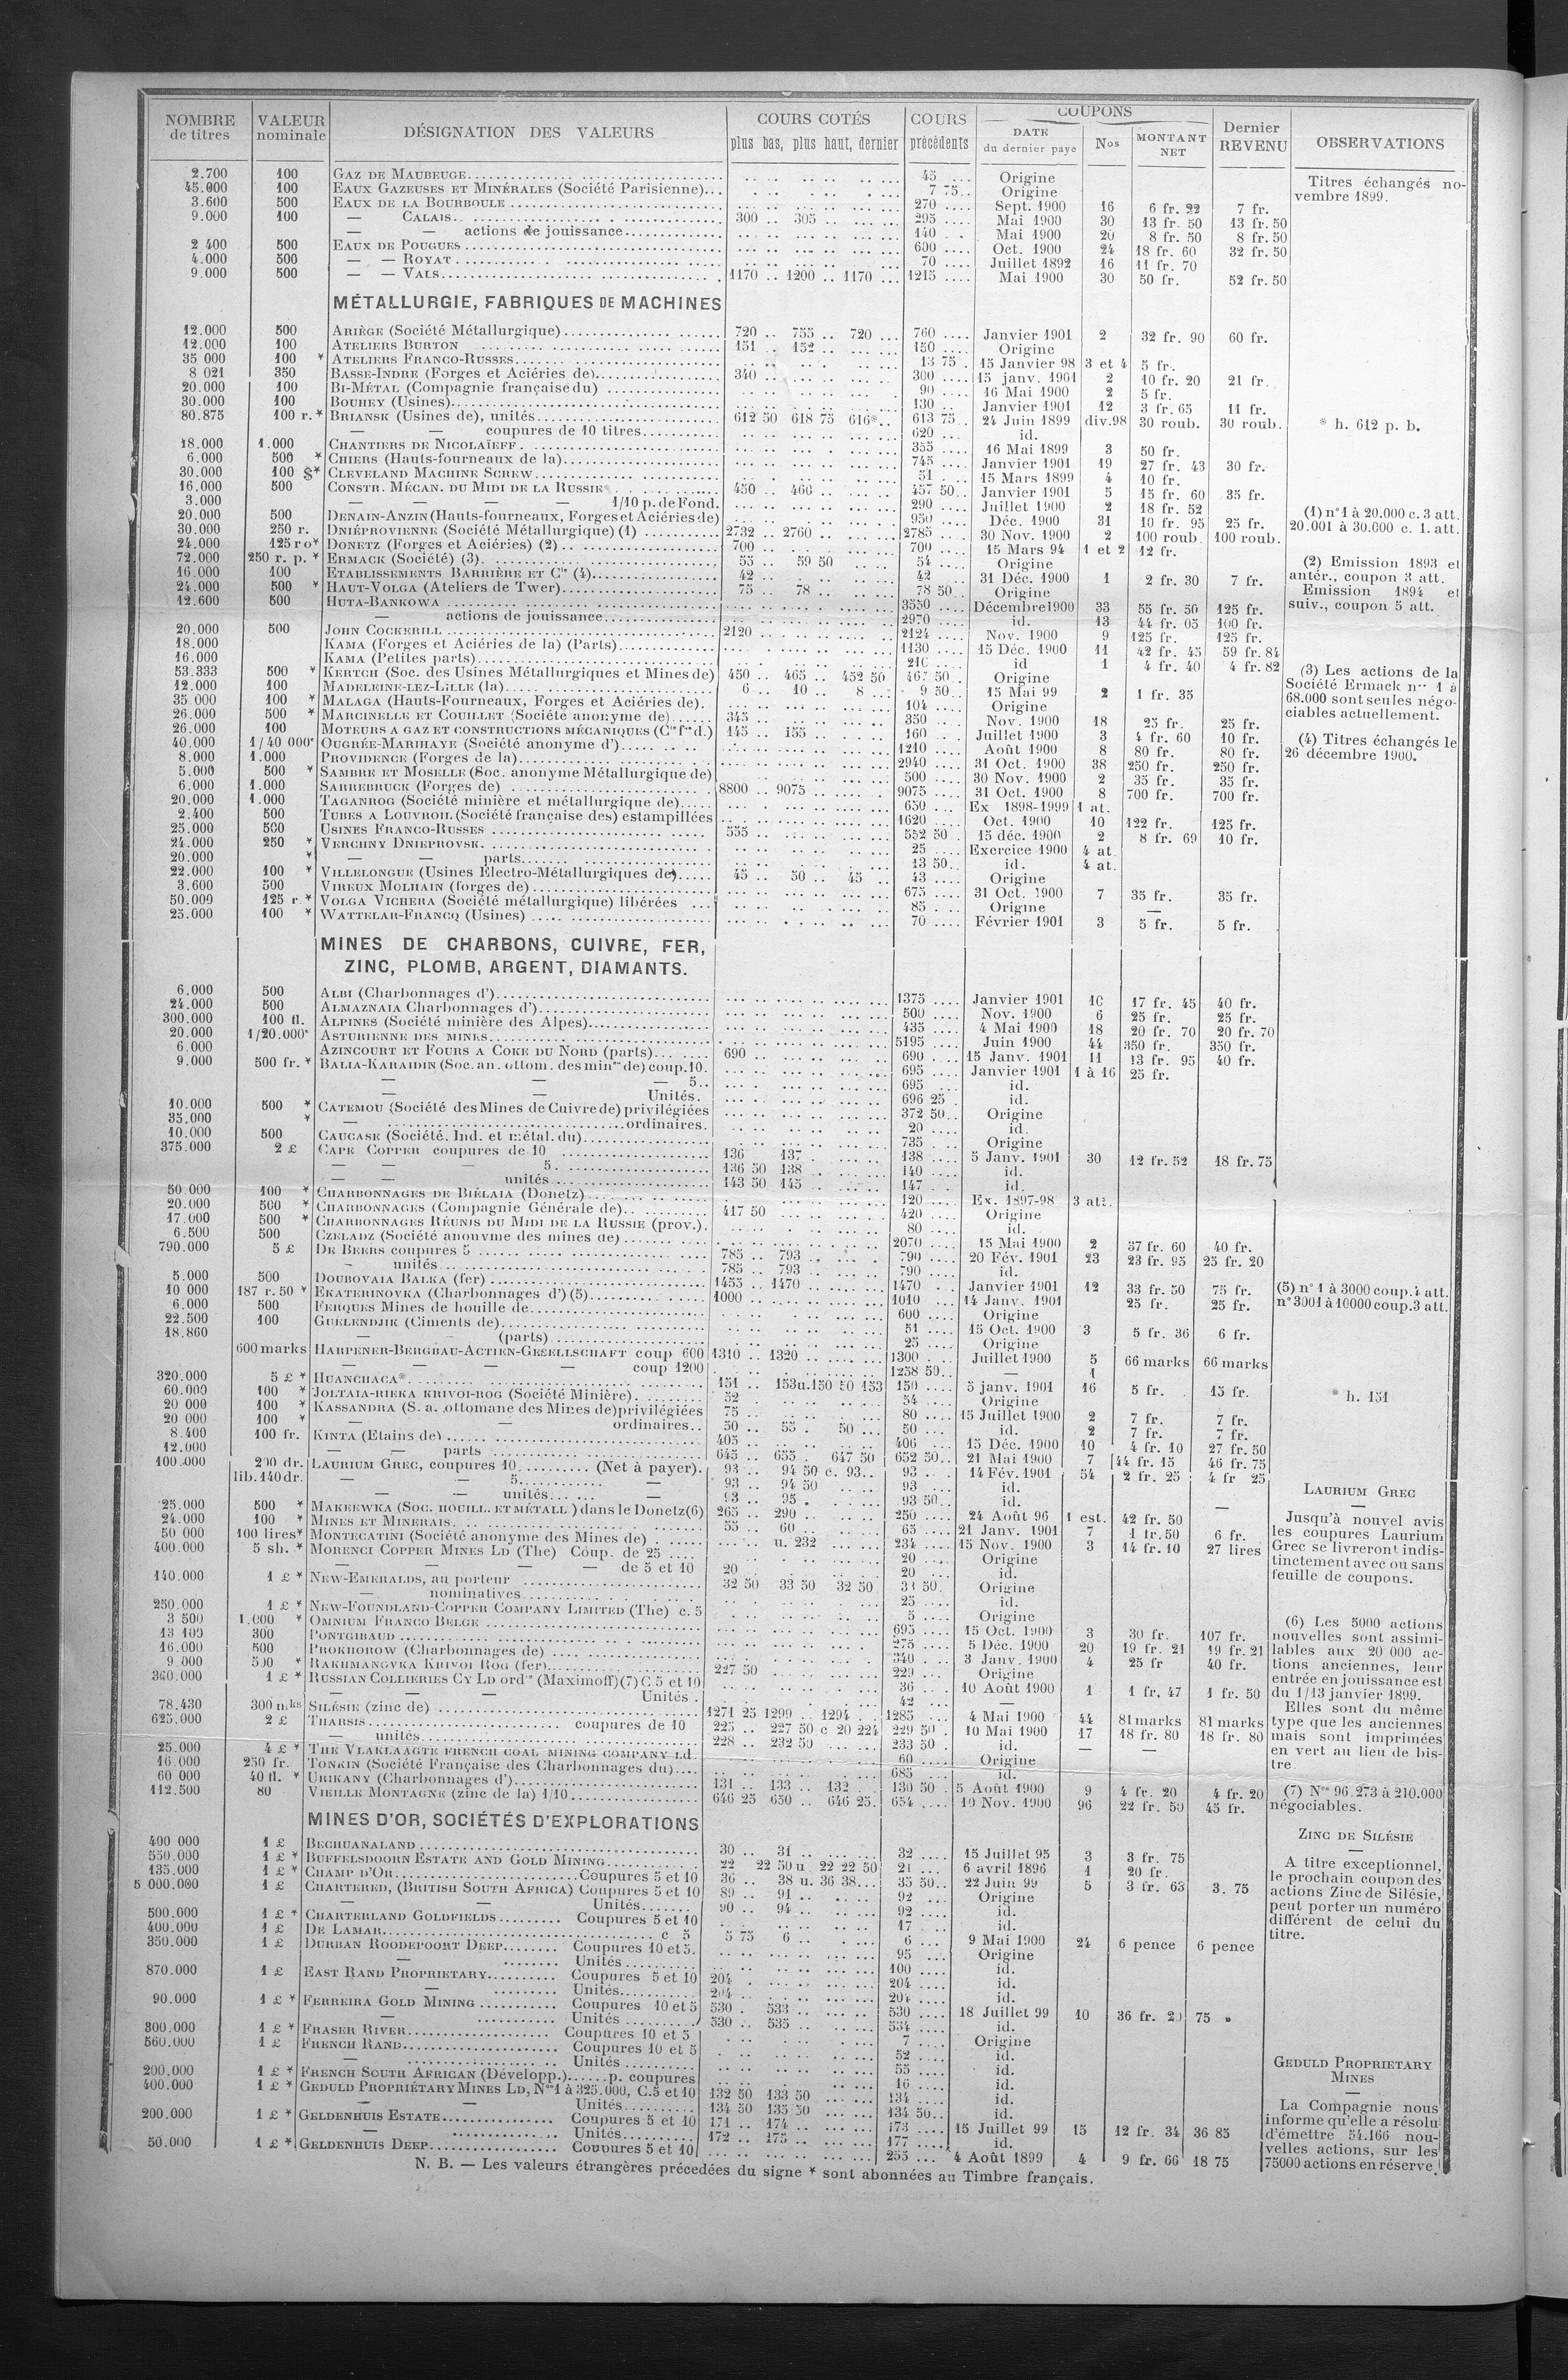 NOMBRE de titres | VALEUR nominale | DÉSIGNATION DES VALEURS | COURS COTÉS plus bas, plus haut, dernier | COURS précédents | COUPONS DATE du dernier paye | Nos | MONTANT NET | Dernier REVENU | OBSERVATIONS
2.700 100 GAZ DE MAUBEUGE 45 Origine
45.000 100 EAUX GAZEUSES ET MINÉRALES (Société Parisienne) 7 75 Origine
3.600 500 EAUX DE LA BOURBOULE 270 Sept. 1900 16 6 fr. 22 7 fr.
9.000 100 — CALAIS 300 305 295 Mai 1900 30 13 fr. 50 13 fr. 50
— — actions de jouissance 140 Mai 1900 20 8 fr. 50 8 fr. 50
2 400 500 EAUX DE POUGUES 600 Oct. 1900 24 18 fr. 60 32 fr. 50
4.000 500 — — ROYAT 70 Juillet 1892 16 11 fr. 70
9.000 500 — — VALS 1170 1200 1170 1215 Mai 1900 30 50 fr. 52 fr. 50
Titres échangés novembre 1899.
MÉTALLURGIE, FABRIQUES DE MACHINES
12.000 500 ARIÈGE (Société Métallurgique) 720 755 720 760 Janvier 1901 2 32 fr. 90 60 fr.
12.000 100 ATELIERS BURTON 151 152 150 Origine
35 000 100 * ATELIERS FRANCO-RUSSES 13 75 15 Janvier 98 3 et 4 5 fr.
8 021 350 BASSE-INDRE (Forges et Aciéries de) 340 300 15 janv. 1901 2 10 fr. 20 21 fr.
20.000 100 BI-MÉTAL (Compagnie française du) 90 16 Mai 1900 2 5 fr.
30.000 100 BOUHEY (Usines) 130 Janvier 1901 12 3 fr. 65 11 fr.
80.875 100 r. * BRIANSK (Usines de), unités 612 50 618 75 616* 613 75 24 Juin 1899 div.98 30 roub. 30 roub. * h. 612 p. b.
— — coupures de 10 titres 620 id.
18.000 1.000 CHANTIERS DE NICOLAÏEFF 355 16 Mai 1899 3 50 fr.
6.000 500 * CHIERS (Hauts-fourneaux de la) 745 Janvier 1901 19 27 fr. 43 30 fr.
30.000 100 $* CLEVELAND MACHINE SCREW 51 15 Mars 1899 4 10 fr.
16.000 500 CONSTR. MÉCAN. DU MIDI DE LA RUSSIE 450 460 457 50 Janvier 1901 5 15 fr. 60 35 fr.
3.000 — — — — 1/10 p. de Fond. 290 Juillet 1900 2 18 fr. 52
20.000 500 DENAIN-ANZIN (Hauts-fourneaux, Forges et Aciéries de) 950 Déc. 1900 31 10 fr. 95 25 fr.
30.000 250 r. DNIÉPROVIENNE (Société Métallurgique) (1) 2732 2760 2785 30 Nov. 1900 2 100 roub. 100 roub.
24.000 125 ro* DONETZ (Forges et Aciéries) (2) 700 700 15 Mars 94 1 et 2 12 fr.
72.000 250 r. p. * ERMACK (Société) (3) 55 59 50 54 Origine
16.000 100 ETABLISSEMENTS BARRIÈRE ET Cie (4) 42 42 31 Déc. 1900 1 2 fr. 30 7 fr.
24.000 500 * HAUT-VOLGA (Ateliers de Twer) 75 78 78 50 Origine
12.600 500 HUTA-BANKOWA 3550 Décembre 1900 33 55 fr. 50 125 fr.
— actions de jouissance 2970 id. 13 44 fr. 05 100 fr.
20.000 500 JOHN COCKERILL 2120 2124 Nov. 1900 9 125 fr. 125 fr.
18.000 KAMA (Forges et Aciéries de la) (Parts) 1130 15 Déc. 1900 11 42 fr. 45 59 fr. 84
16.000 KAMA (Petites parts) 210 id 1 4 fr. 40 4 fr. 82
53.333 500 * KERTCH (Soc. des Usines Métallurgiques et Mines de) 450 465 452 50 467 50 Origine
12.000 100 MADELEINE-LEZ-LILLE (la) 6 10 8 9 50 15 Mai 99 2 1 fr. 35
35 000 100 * MALAGA (Hauts-Fourneaux, Forges et Aciéries de) 104 Origine
26.000 500 * MARCINELLE ET COUILLET (Société anonyme de) 345 350 Nov. 1900 18 25 fr. 25 fr.
26.000 100 MOTEURS A GAZ ET CONSTRUCTIONS MÉCANIQUES (Cie fse d.) 145 155 160 Juillet 1900 3 4 fr. 60 10 fr.
40.000 1/40 000e OUGRÉE-MARIHAYE (Société anonyme d') 1210 Août 1900 8 80 fr. 80 fr.
8.000 1.000 PROVIDENCE (Forges de la) 2940 31 Oct. 1900 38 250 fr. 250 fr.
5.000 500 * SAMBRE ET MOSELLE (Soc. anonyme Métallurgique de) 500 30 Nov. 1900 2 35 fr. 35 fr.
6.000 1.000 SARREBRUCK (Forges de) 8800 9075 9075 31 Oct. 1900 8 700 fr. 700 fr.
20.000 1.000 TAGANROG (Société minière et métallurgique de) 650 Ex 1898-1999 1 at.
2.400 500 TUBES A LOUVROIL (Société française des) estampillées 1620 Oct. 1900 10 122 fr. 125 fr.
25.000 500 USINES FRANCO-RUSSES 555 552 50 15 déc. 1900 2 8 fr. 69 10 fr.
24.000 250 * VERCHNY DNIEPROVSK 25 Exercice 1900 4 at.
20.000 * — — parts 13 50 id. 4 at.
22.000 100 * VILLELONGUE (Usines Électro-Métallurgiques de) 45 50 45 43 Origine
3.600 500 VIREUX MOLHAIN (forges de) 675 31 Oct. 1900 7 35 fr. 35 fr.
50.000 125 r. * VOLGA VICHERA (Société métallurgique) libérées 85 Origine —
25.000 100 * WATTELAR-FRANCQ (Usines) 70 Février 1901 3 5 fr. 5 fr.
(1) n° 1 à 20.000 c. 3 att.
20.001 à 30.000 c. 1. att.
(2) Emission 1893 et
antér., coupon 3 att.
Emission 1894 et
suiv., coupon 5 att.
(3) Les actions de la
Société Ermack nos 1 à
68.000 sont seules négo-
ciables actuellement.
(4) Titres échangés le
26 décembre 1900.
MINES DE CHARBONS, CUIVRE, FER,
ZINC, PLOMB, ARGENT, DIAMANTS.
6.000 500 ALBI (Charbonnages d') 1375 Janvier 1901 10 17 fr. 45 40 fr.
24.000 500 ALMAZNAIA Charbonnages d') 500 Nov. 1900 6 25 fr. 25 fr.
300.000 100 fl. ALPINES (Société minière des Alpes) 435 4 Mai 1900 18 20 fr. 70 20 fr. 70
20.000 1/20.000e ASTURIENNE DES MINES 5195 Juin 1900 44 350 fr. 350 fr.
6.000 AZINCOURT ET FOURS A COKE DU NORD (parts) 690 690 15 Janv. 1901 11 13 fr. 95 40 fr.
9.000 500 fr. * BALIA-KARAIDIN (Soc. an. ottom. des mines de) coup. 10. 695 Janvier 1901 1 à 16 25 fr.
— — 5 695 id.
— — Unités. 696 25 id.
10.000 500 * CATEMOU (Société des Mines de Cuivre de) privilégiées 372 50 Origine
35.000 * — ordinaires. 20 id.
10.000 500 CAUCASE (Société. Ind. et métal. du) 735 Origine
375.000 2 £ CAPE COPPER coupures de 10 136 137 138 5 Janv. 1901 30 12 fr. 52 18 fr. 75
— — 5. 136 50 138 140 id.
— — unités 143 50 145 147 id.
50 000 100 * CHARBONNAGES DE BIÉLAIA (Donetz) 120 Ex. 1897-98 3 att.
20.000 500 * CHARBONNAGES (Compagnie Générale de) 417 50 420 Origine
17.000 500 * CHARBONNAGES RÉUNIS DU MIDI DE LA RUSSIE (prov.) 80 id.
6.500 500 CZELADZ (Société anonyme des mines de) 2070 15 Mai 1900 2 37 fr. 60 40 fr.
790.000 5 £ DE BEERS coupures 5 785 793 790 20 Fév. 1901 23 23 fr. 95 25 fr. 20
unités 785 793 790 id.
5.000 500 DOUBOVAIA BALKA (fer) 1455 1470 1470 Janvier 1901 12 33 fr. 50 75 fr.
10 000 187 r.50 * EKATERINOVKA (Charbonnages d') (5) 1000 1010 14 Janv. 1901 25 fr. 25 fr.
6.000 500 FERQUES Mines de houille de 600 Origine
22.500 100 GUELENDJIK (Ciments de) 51 15 Oct. 1900 3 5 fr. 36 6 fr.
18.860 — — (parts) 25 Origine
600 marks HARPENER-BERGBAU-ACTIEN-GESELLSCHAFT coup 600 1310 1320 1300 Juillet 1900 5 66 marks 66 marks
— — — — coup 1200 1258 50 — 1
320.000 5 £ * HUANCHACA* 151 153 u. 150 50 153 150 5 janv. 1901 16 5 fr. 15 fr. * h. 151
60.000 100 * JOLTAIA-RIEKA KRIVOI-ROG (Société Minière) 52 54 Origine
20 000 100 * KASSANDRA (S. a. ottomane des Mines de) privilégiées 75 80 15 Juillet 1900 2 7 fr. 7 fr.
20 000 100 * — — ordinaires 50 55 50 50 id. 2 7 fr. 7 fr.
8.400 100 fr. KINTA (Etains de) 405 406 15 Déc. 1900 10 4 fr. 10 27 fr. 50
12.000 — — parts 645 655 647 50 652 50 21 Mai 1900 7 44 fr. 15 46 fr. 75
100.000 200 dr. LAURIUM GREC, coupures 10 (Net à payer) 93 94 50 c. 93 93 14 Fév. 1901 54 2 fr. 25 4 fr 25
lib. 140 dr. — — 5 — 93 94 50 93 id.
— — unités — 93 95 93 50 id. —
25.000 500 * MAKEEWKA (Soc. HOUILL. ET MÉTALL ) dans le Donetz (6) 265 290 250 24 Août 96 1 est. 42 fr. 50
24.000 100 * MINES ET MINERAIS 55 60 65 21 Janv. 1901 7 1 fr. 50 6 fr.
50 000 100 lires* MONTECATINI (Société anonyme des Mines de) u. 232 234 15 Nov. 1900 3 14 fr. 10 27 lires
400.000 5 sh. * MORENCI COPPER MINES LD (The) Coup. de 25 20 Origine
— — — — de 5 et 10 20 20 id.
140.000 1 £ * NEW-EMERALDS, au porteur 32 50 33 50 32 50 50. Origine
— nominatives 25 id.
250.000 1 £ * NEW-FOUNDLAND-COPPER COMPANY LIMITED (The) c. 5 5 Origine
3 500 1.000 * OMNIUM FRANCO BELGE 695 15 Oct. 1900 3 30 fr. 107 fr.
13 100 300 PONTGIBAUD 275 5 Déc. 1900 20 19 fr. 21 19 fr. 21
16.000 500 PROKHOROW (Charbonnages de) 340 3 Janv. 1900 4 25 fr 40 fr.
9.000 500 * RAKHMANOVKA KRIVOI ROG (fer) 227 50 229 Origine
360.000 1 £ * RUSSIAN COLLIERIES CY LD ordres (Maximoff) (7) C. 5 et 10 36 10 Août 1900 1 1 fr. 47 1 fr. 50
— — — Unités. 42 —
78.430 300 mks SILÉSIE (zinc de) 1271 25 1299 1294 1285 4 Mai 1900 44 81 marks 81 marks
625.000 2 £ THARSIS coupures de 10 225 227 50 c 20 224 229 50 10 Mai 1900 17 18 fr. 80 18 fr. 80
— unités 228 232 50 233 50 id. — —
25.000 4 £ * THE VLAKLAAGTE FRENCH COAL MINING COMPANY Ld 60 Origine
16.000 250 fr. TONKIN (Société Française des Charbonnages du) 685 id.
60 000 40 fl. * URIKANY (Charbonnages d') 131 133 132 130 50 5 Août 1900 9 4 fr. 20 4 fr. 20
112.500 80 VIEILLE MONTAGNE (zinc de la) 1/10 646 25 650 646 25 654 10 Nov. 1900 96 22 fr. 50 45 fr.
(5) n° 1 à 3000 coup. 4 att.
n° 3001 à 10000 coup. 3 att.
LAURIUM GREC
Jusqu'à nouvel avis
les coupures Laurium
Grec se livreront indis-
tinctement avec ou sans
feuille de coupons.
(6) Les 5000 actions
nouvelles sont assimi-
lables aux 20 000 ac-
tions anciennes, leur
entrée en jouissance est
du 1/13 janvier 1899.
Elles sont du même
type que les anciennes
mais sont imprimées
en vert au lieu de bis-
tre.
(7) Nos 96.273 à 210.000
négociables.
MINES D'OR, SOCIÉTÉS D'EXPLORATIONS
400 000 1 £ BECHUANALAND 30 31 32 15 Juillet 95 3 3 fr. 75
550.000 1 £ * BUFFELSDOORN ESTATE AND GOLD MINING 22 22 50 u 22 22 50 21 6 avril 1896 1 20 fr.
135.000 1 £ * CHAMP D'OR Coupures 5 et 10 36 38 u. 36 38 35 50 22 Juin 99 5 3 fr. 63 3. 75
5 000.000 1 £ CHARTERED, (BRITISH SOUTH AFRICA) Coupures 5 et 10 89 91 92 Origine
— — Unités 90 94 92 id.
500.000 1 £ * CHARTERLAND GOLDFIELDS Coupures 5 et 10 17 id.
400.000 1 £ DE LAMAR c 5 5 75 6 6 9 Mai 1900 24 6 pence 6 pence
350.000 1 £ DURBAN ROODEPOORT DEEP Coupures 10 et 5. 95 Origine
— Unités 100 id.
870.000 1 £ EAST RAND PROPRIETARY Coupures 5 et 10 204 204 id.
— Unités 204 204 id.
90.000 1 £ * FERREIRA GOLD MINING Coupures 10 et 5 530 533 530 18 Juillet 99 10 36 fr. 20 75 »
— Unités 530 535 534 id.
300.000 1 £ * FRASER RIVER Coupures 10 et 5 7 Origine
560.000 1 £ FRENCH RAND Coupures 10 et 5 52 id.
— Unités 55 id.
200.000 1 £ * FRENCH SOUTH AFRICAN (Développ.) p. coupures 16 id.
400.000 1 £ * GEDULD PROPRIÉTARY MINES LD, Nos 1 à 325.000, C. 5 et 10 132 50 133 50 134 id.
— — Unités 134 50 135 50 134 50 id.
200.000 1 £ * GELDENHUIS ESTATE Coupures 5 et 10 171 174 173 15 Juillet 99 15 12 fr. 34 36 85
— Unités 172 175 177 id.
50.000 1 £ * GELDENHUIS DEEP Coupures 5 et 10 255 4 Août 1899 4 9 fr. 66 18 75
ZINC DE SILÉSIE
A titre exceptionnel,
le prochain coupon des
actions Zinc de Silésie,
peut porter un numéro
différent de celui du
titre.
GEDULD PROPRIETARY
MINES
La Compagnie nous
informe qu'elle a résolu
d'émettre 54.166 nou-
velles actions, sur les
75000 actions en réserve.
N. B. — Les valeurs étrangères précédées du signe * sont abonnées au Timbre français.